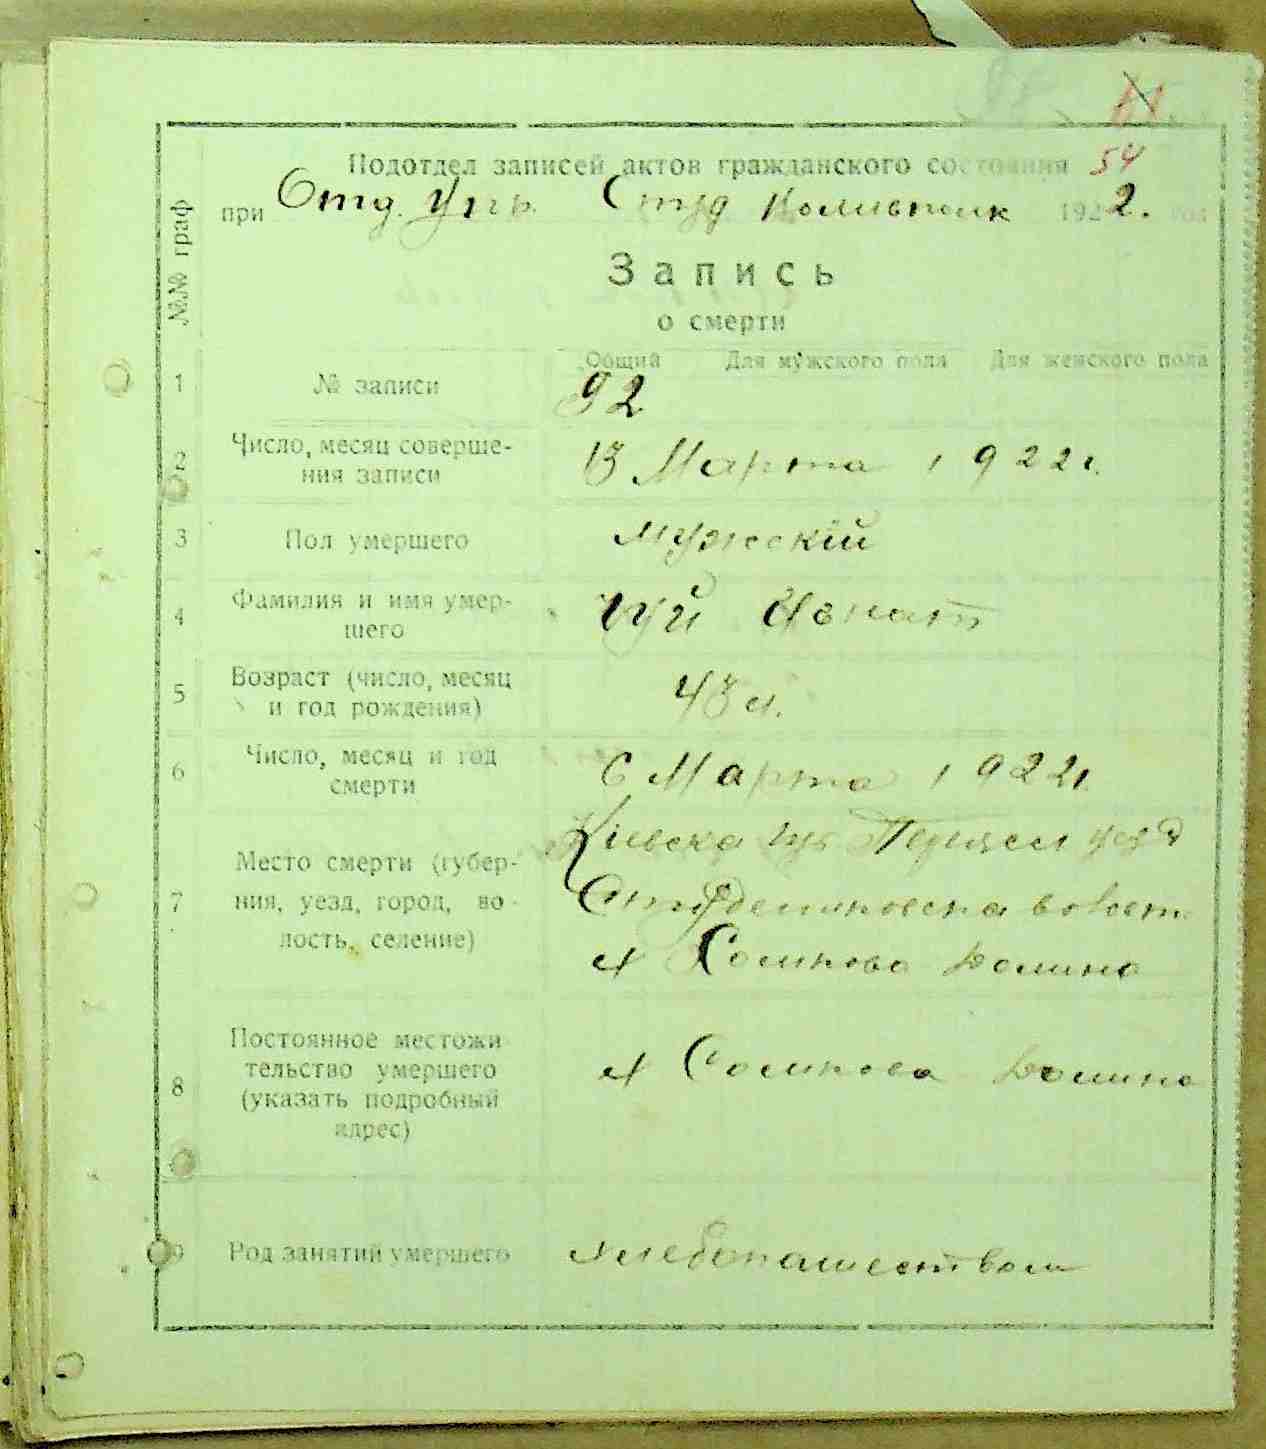 54
Подотдел записей актов гражданского состояния
при Отд. Упр. Студ 1922. год
№№ граф
Запись
о смерти
Общий Для мужского пола Для женского пола
1 № записи 92
2 Число, месяц соверше-
ния записи
13 Марта 1922 г.
3 Пол умершего мужскій
4 Фамилия и имя умер-
шего
Чуй Игнат
5 Возраст (число, месяц
и год рождения)
43 л.
6 Число, месяц и год
смерти
6 Марта 1922 г.
7 Место смерти (губер-
ния, уезд, город, во-
лость, селение)
Кіевска губ уезд
Студениковска волост
Сомкова Долина
8 Постоянное местожи
тельство умершего
(указать подробный
адрес)
Сомкова Долина
9 Род занятий умершего хлебопашеством